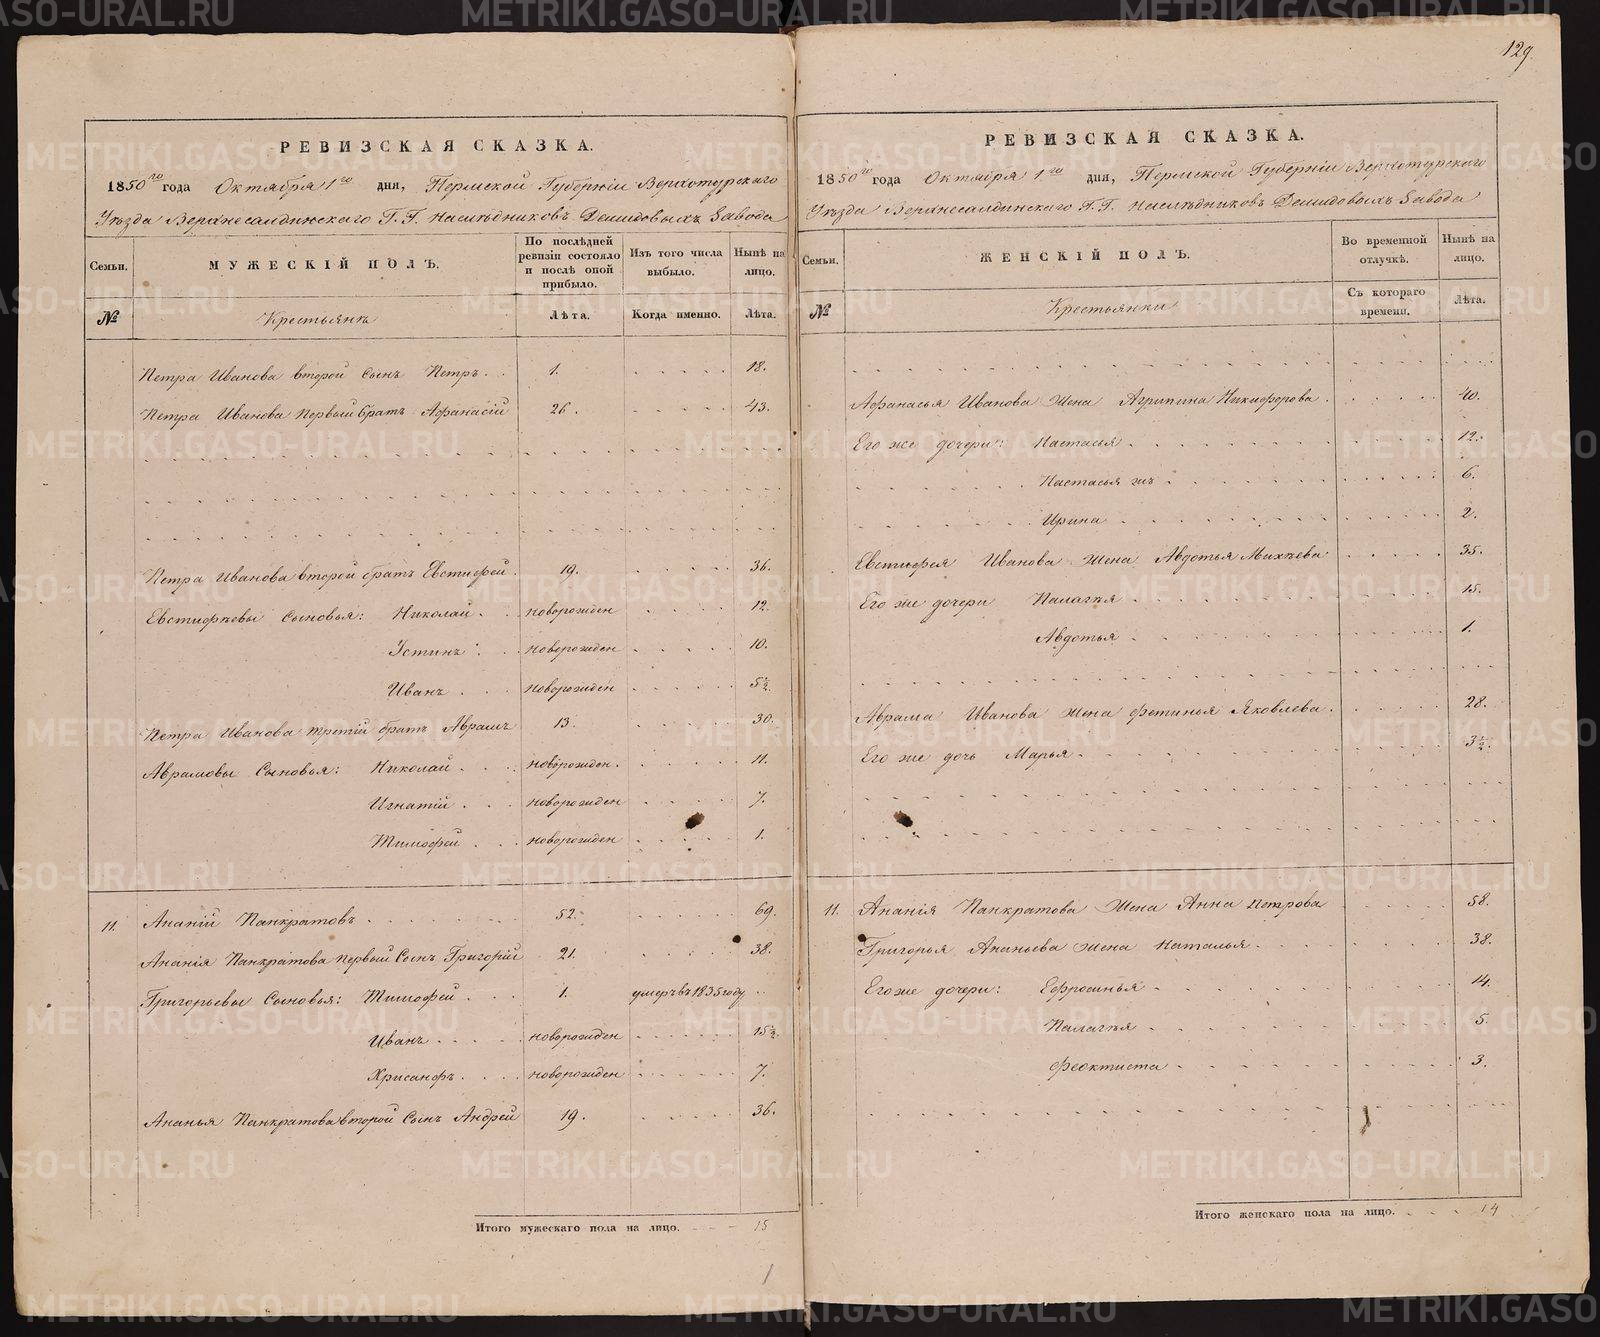 129.
РЕВИЗСКАЯ СКАЗКА.
1850го года Октября 1го дня, Пермской Губерніи Верхотурскаго
Уѣзда Верхнесалдинскаго Г.Г. Наслѣдниковъ Демидовыхъ Завода
Семьи.
МУЖЕСКІЙ ПОЛЪ.
По послѣдней ревизіи состояло и послѣ оной прибыло.
Изъ того числа выбыло.
Нынѣ на лицо.
№
Крестьянъ
Лѣта.
Когда именно.
Лѣта.
Петра Иванова второй сынъ Петръ 1. 18.
Петра Иванова первый братъ Афанасій 26. 43.
Петра Иванова второй братъ Евстифей 19. 36.
Евстифѣевы Сыновья: Николай новорожден 12.
Устинъ новорожден 10.
Иванъ новорожден 5½
Петра Иванова третій братъ Аврамъ 13. 30.
Аврамовы Сыновья: Николай новорожден. 11.
Игнатій новорожден 7.
Тимофей новорожден 1.
11. Ананій Панкратовъ 52. 69.
Ананія Панкратова первый Сынъ Григорій 21. 38.
Григорьевы Сыновья: Тимофей 1. умеръ въ 1835 году
Иванъ новорожден 15½
Хрисанфъ новорожден 7.
Ананья Панкратова второй Сынъ Андрей 19. 36.
Итого мужескаго пола на лицо. 15
РЕВИЗСКАЯ СКАЗКА.
1850го года Октября 1го дня, Пермской Губерніи Верхотурскаго
Уѣзда Верхнесалдинскаго Г.Г. Наслѣдниковъ Демидовыхъ Завода
Семьи.
ЖЕНСКІЙ ПОЛЪ.
Во временной отлучкѣ.
Нынѣ на лицо.
№
Крестьянки
Съ котораго времени.
Лѣта.
Афанасья Иванова жена Агрипина Никифорова 40.
Его же дочери: Настасья 12.
Настасья жъ 6.
Ирина 2.
Евстифея Иванова жена Авдотья Михѣева 35.
Его же дочери Палагья 15.
Авдотья 1.
Аврама Иванова жена Фетинья Яковлева 28.
Его же дочь Марья 3½
11. Ананія Панкратова жена Анна Петрова 58.
Григорья Ананьева жена Наталья 38.
Его же дочери: Ефросинья 14.
Палагья 5.
Феоктиста 3.
Итого женскаго пола на лицо. 14
METRIKI.GASO-URAL.RU